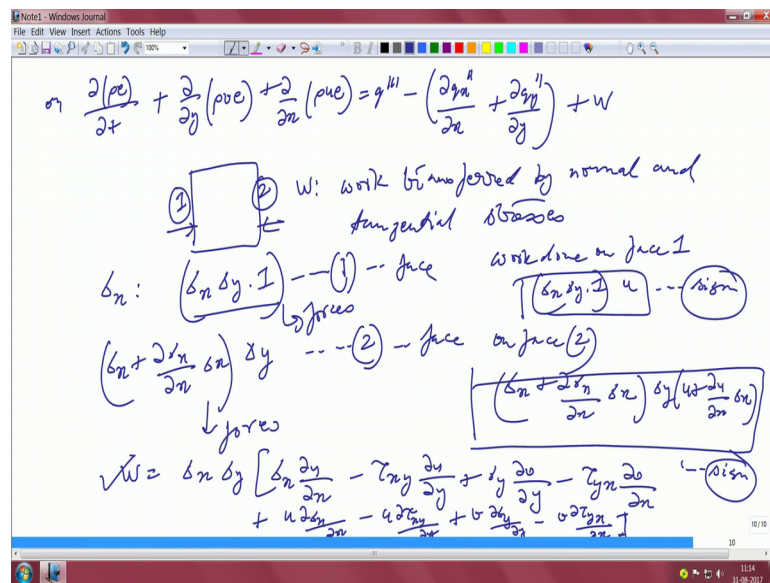 Note1 - Windows Journal
File Edit View Insert Actions Tools Help
100%
or ∂(ρe)/∂t + ∂/∂y (ρve) + ∂/∂x (ρue) = q''' − (∂qx''/∂x + ∂qy''/∂y) + W
1 2 W: work transferred by normal and
tangential stresses
work done on face 1
σx: (σx δy·1) --- (1) -- face (σx δy·1) u --- sign
forces
(σx + ∂σx/∂x δx) δy ---- (2) -- face on face (2)
(σx + ∂σx/∂x δx) δy (u + ∂u/∂x δx)
forces
W = δx δy [σx ∂u/∂x − τxy ∂u/∂y + σy ∂v/∂y − τyx ∂v/∂x -- sign
+ u ∂σx/∂x − u ∂τxy/∂y + v ∂σy/∂y − v ∂τyx/∂x]
10/10
10
11:14
31-08-2017